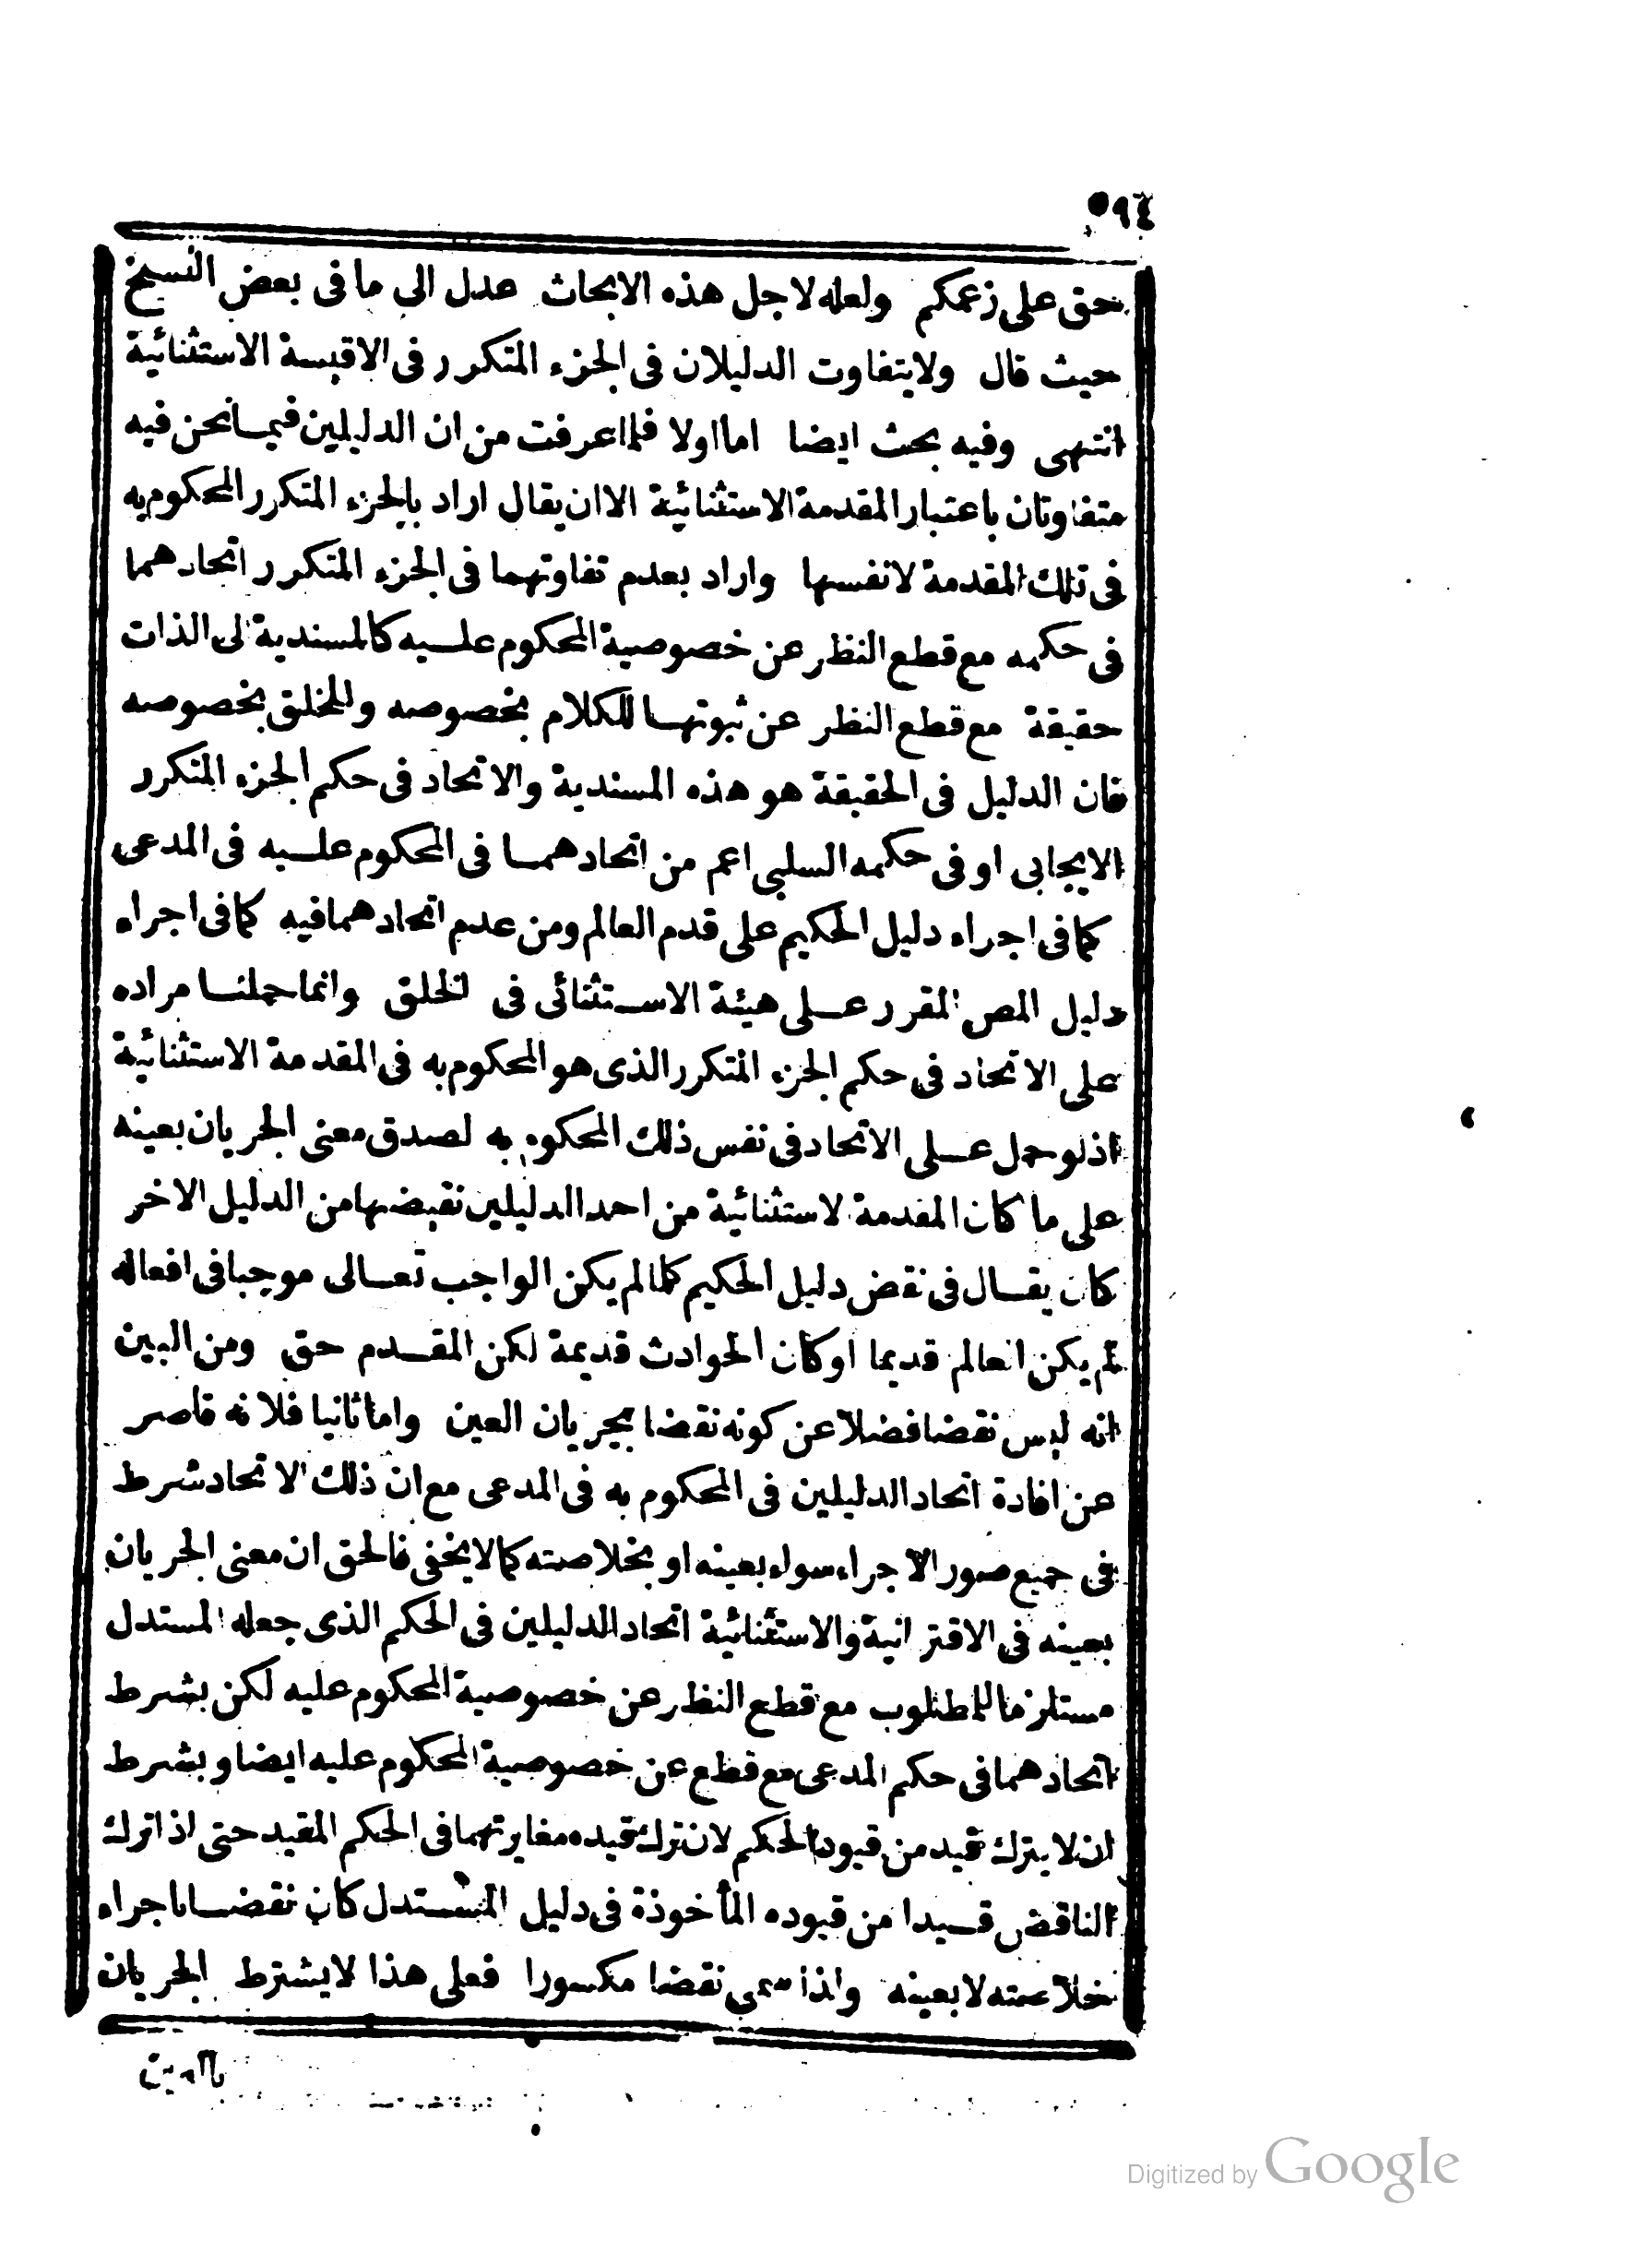 ٥٩٤
حق على زعمكم ولعله لاجل هذه الابحاث عدل الى ما فى بعض النسخ
حيث قال ولا يتفاوت الدليلان فى الجزء المتكرر فى الاقيسة الاستثنائية
انتهى وفيه بحث ايضا اما اولا فلما عرفت من ان الدليلين فيما نحن فيه
متفاوتان باعتبار المقدمة الاستثنائية الا ان يقال اراد بالجزء المتكرر المحكوم به
فى تلك المقدمة لا نفسها واراد بعدم تفاوتهما فى الجزء المتكرر اتحادهما
فى حكمه مع قطع النظر عن خصوصية المحكوم عليه كالمسندية الى الذات
حقيقة مع قطع النظر عن ثبوتها للكلام بخصوصه وللخلق بخصوصه
فان الدليل فى الحقيقة هو هذه المسندية والاتحاد فى حكم الجزء المتكرر
الايجابى او فى حكمه السلبى اعم من اتحادهما فى المحكوم عليه فى المدعى
كما فى اجراء دليل الحكيم على قدم العالم ومن عدم اتحادهما فيه كما فى اجراء
دليل المص المقرر على هيئة الاستثنائى فى الخلق وانما حملنا مراده
على الاتحاد فى حكم الجزء المتكرر الذى هو المحكوم به فى المقدمة الاستثنائية
اذ لو حمل على الاتحاد فى نفس ذلك المحكوم به لصدق معنى الجريان بعينه
على ما كان المقدمة الاستثنائية من احد الدليلين نقيضها من الدليل الاخر
كان يقال فى نقض دليل الحكيم كلما لم يكن الواجب تعالى موجبا فى افعاله
لم يكن العالم قديما او كان الحوادث قديمة لكن المقدم حق ومن البين
انه ليس نقضا فضلا عن كونه نقضا بجريان العين واما ثانيا فلانه قاصر
عن افادة اتحاد الدليلين فى المحكوم به فى المدعى مع ان ذلك الاتحاد شرط
فى جميع صور الاجراء سواء بعينه او بخلاصته كما لا يخفى فالحق ان معنى الجريان
بعينه فى الاقترانية والاستثنائية اتحاد الدليلين فى الحكم الذى جعله المستدل
مستلزما للمطلوب مع قطع النظر عن خصوصية المحكوم عليه لكن بشرط
اتحادهما فى حكم المدعى مع قطع عن خصوصية المحكوم عليه ايضا وبشرط
ان لا يترك قيد من قيود الحكم لان ترك قيده مغايرتهما فى الحكم المقيد حتى اذا ترك
الناقض قيدا من قيوده المأخوذة فى دليل المستدل كان نقضا باجراء
خلاصته لا بعينه ولذا سمى نقضا مكسورا فعلى هذا لا يشترط الجريان
بالعين
Digitized by Google